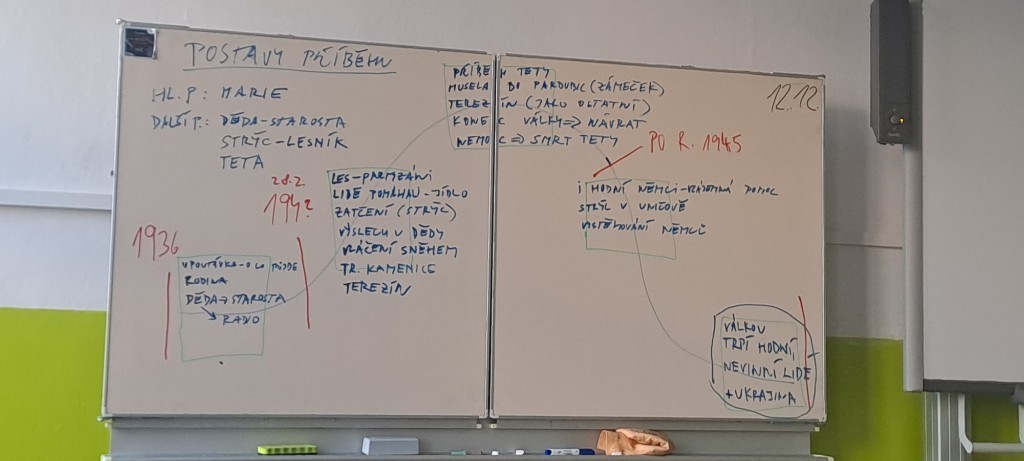 POSTAVY PŘÍBĚHU
HL. P: MARIE
DALŠÍ P.: DĚDA-STAROSTA
STRÝC-LESNÍK
TETA
1936
UPOUTÁVKA-O CO PŮJDE
RODINA
DĚDA→STAROSTA
RÁDIO
28.2
194?
LES-PARTIZÁNI
LIDÉ POMÁHALI-JÍDLO
ZATČENÍ (STRÝC)
VÝSLECH U DĚDY
VLÁČENÍ SNĚHEM
TR. KAMENICE
TEREZÍN
PŘÍBĚH TETY
MUSELA DO PARDUBIC (ZÁMEČEK)
TEREZÍN (JAKO OSTATNÍ)
KONEC VÁLKY⇒NÁVRAT
NEMOC⇒SMRT TETY
12.12.
PO R. 1945
I HODNÍ NĚMCI-VZÁJEMNÁ POMOC
STRÝC V
VYSTĚHOVÁNÍ NĚMCŮ
VÁLKOU
TRPÍ HODNÍ,
NEVINNÍ LIDÉ
+UKRAJINA